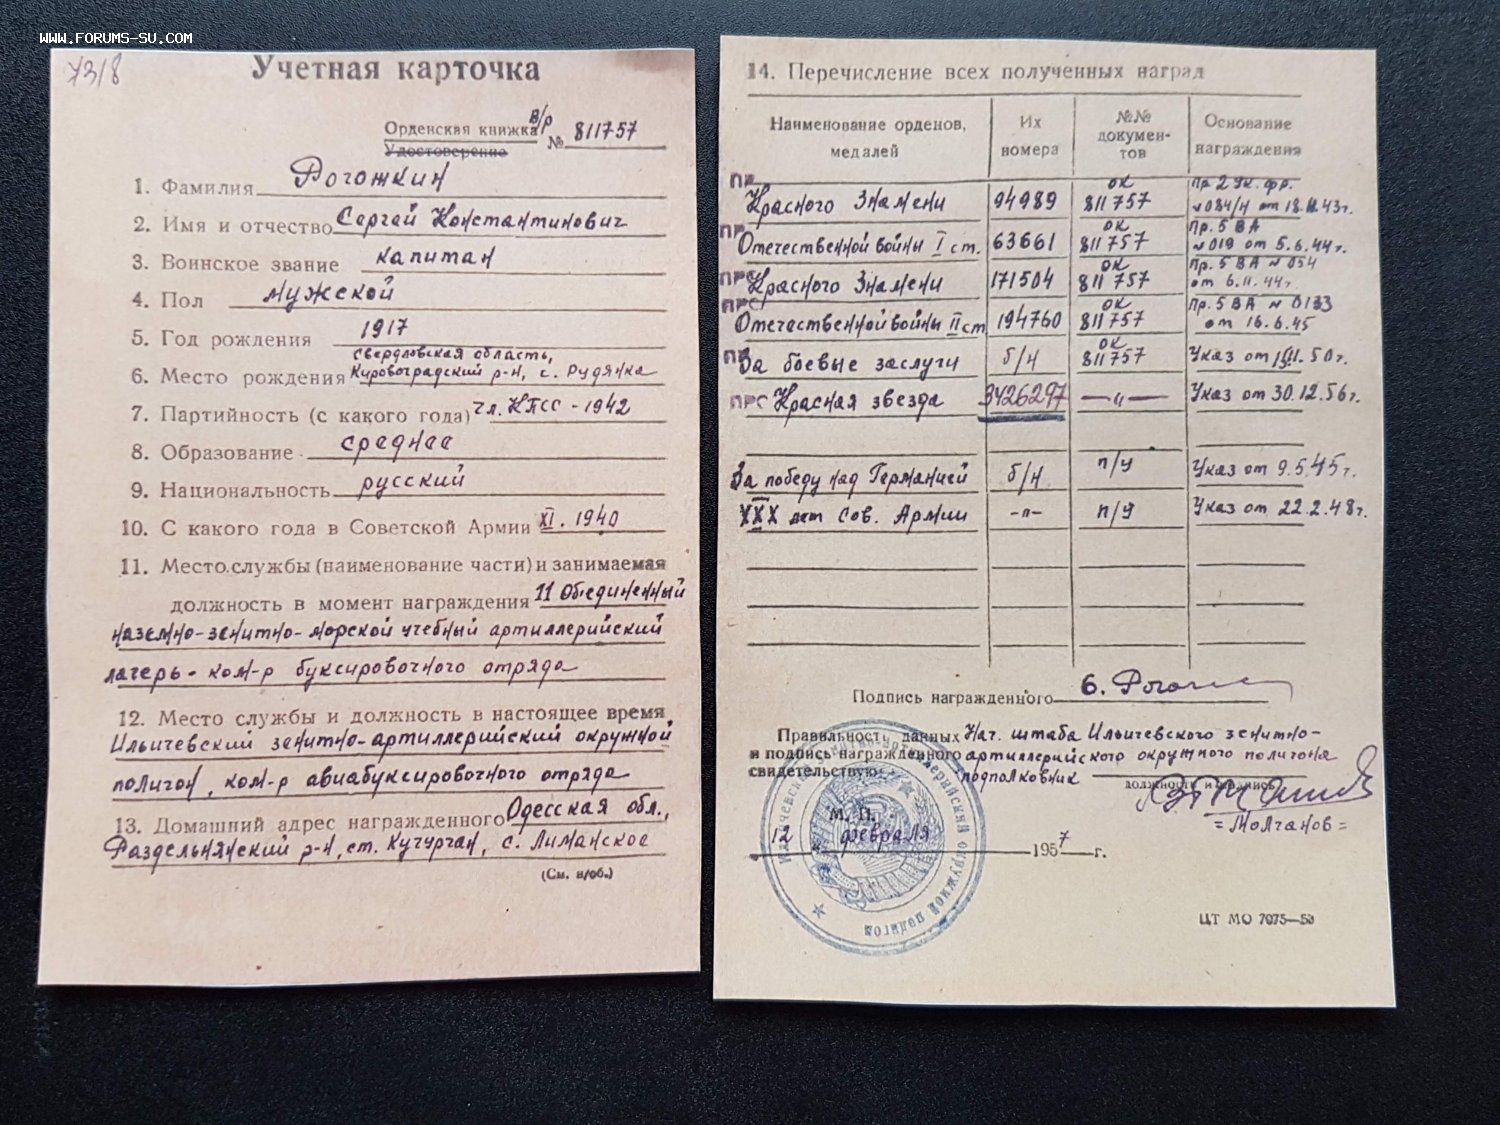 WWW.FORUMS-SU.COM
7318
Учетная карточка
в/р
Орденская книжка № 811757
Удостоверение
1. Фамилия Рогожкин
2. Имя и отчество Сергей Константинович
3. Воинское звание капитан
4. Пол мужской
5. Год рождения 1917
Свердловская область,
6. Место рождения Кировоградский р-н, с. Рудянка
7. Партийность (с какого года) чл. КПСС - 1942
8. Образование среднее
9. Национальность русский
10. С какого года в Советской Армии XI. 1940
11. Место службы (наименование части) и занимаемая
должность в момент награждения 11 Объединенный
наземно-зенитно-морской учебный артиллерийский
лагерь - ком-р буксировочного отряда
12. Место службы и должность в настоящее время,
Ильичевский зенитно-артиллерийский окружной
полигон, ком-р авиабуксировочного отряда
13. Домашний адрес награжденного Одесская обл.,
Раздельнянский р-н, ст. Кучурган, с. Лиманское
(См. н/об.)
14. Перечисление всех полученных наград
Наименование орденов, медалей Их номера №№ докумен-тов Основание награждения
ПР Красного Знамени 94989 ОК 811757 Пр. 2 Ук. фр. №084/н от 18.11.43г.
ПР Отечественной войны I ст. 63661 ОК 811757 Пр. 5 ВА №019 от 5.6.44г.
ПРС Красного Знамени 171504 ОК 811757 Пр. 5 ВА №054 от 6.11.44г
ПРС Отечественной войны II ст 194760 ОК 811757 Пр. 5 ВА №0133 от 16.6.45
ПР За боевые заслуги б/н ОК 811757 Указ от 50г.
ПРС Красная звезда 3426297 —"— Указ от 30.12.56г.
За победу над Германией б/н п/у Указ от 9.5.45г.
XXX лет Сов. Армии -п- п/у Указ от 22.2.48г.
Подпись награжденного
Правильность данных Нач. штаба Ильичевского зенитно-
и подпись награжденного артиллерийского окружного полигона
свидетельствую: подполковник
должность и подпись
= Молчанов =
М. П.
12 февраля 1957 г.
Ильичевский зенитно-артиллерийский окружной полигон
ЦТ МО 7075—50